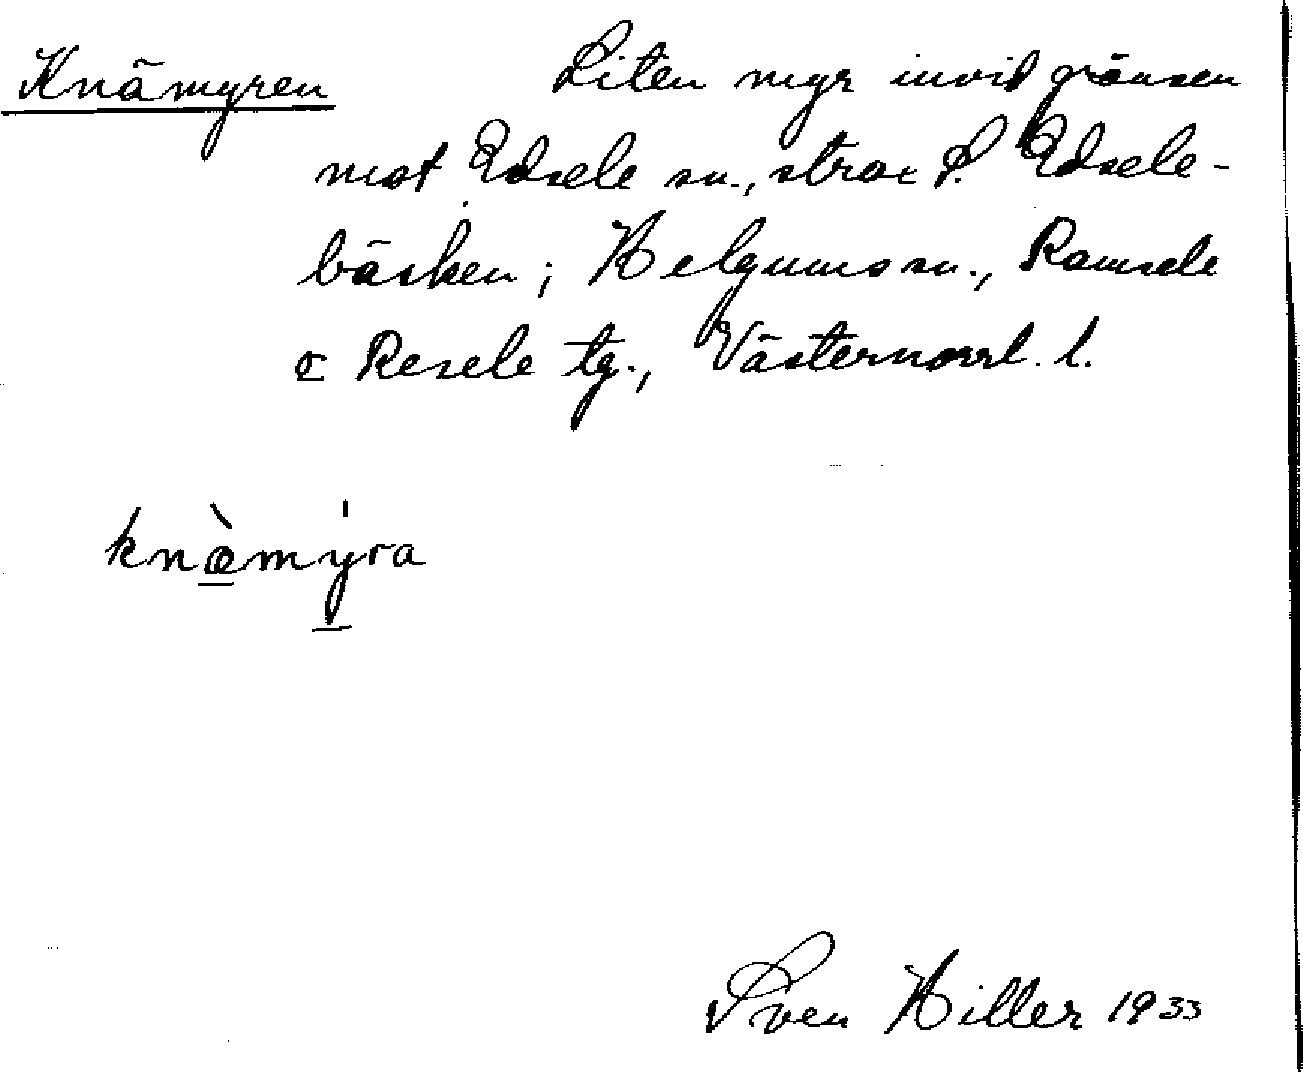 Knämyren Liten myr invid gränsen
mot Edsele sn., strax S. Edsele-
bäcken; Helgums sn., Ramsele
o Resele tg., Västernorrl. l.
knæ̀mýra
Sven Hiller 1933